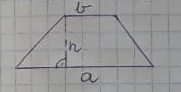 b
h
a